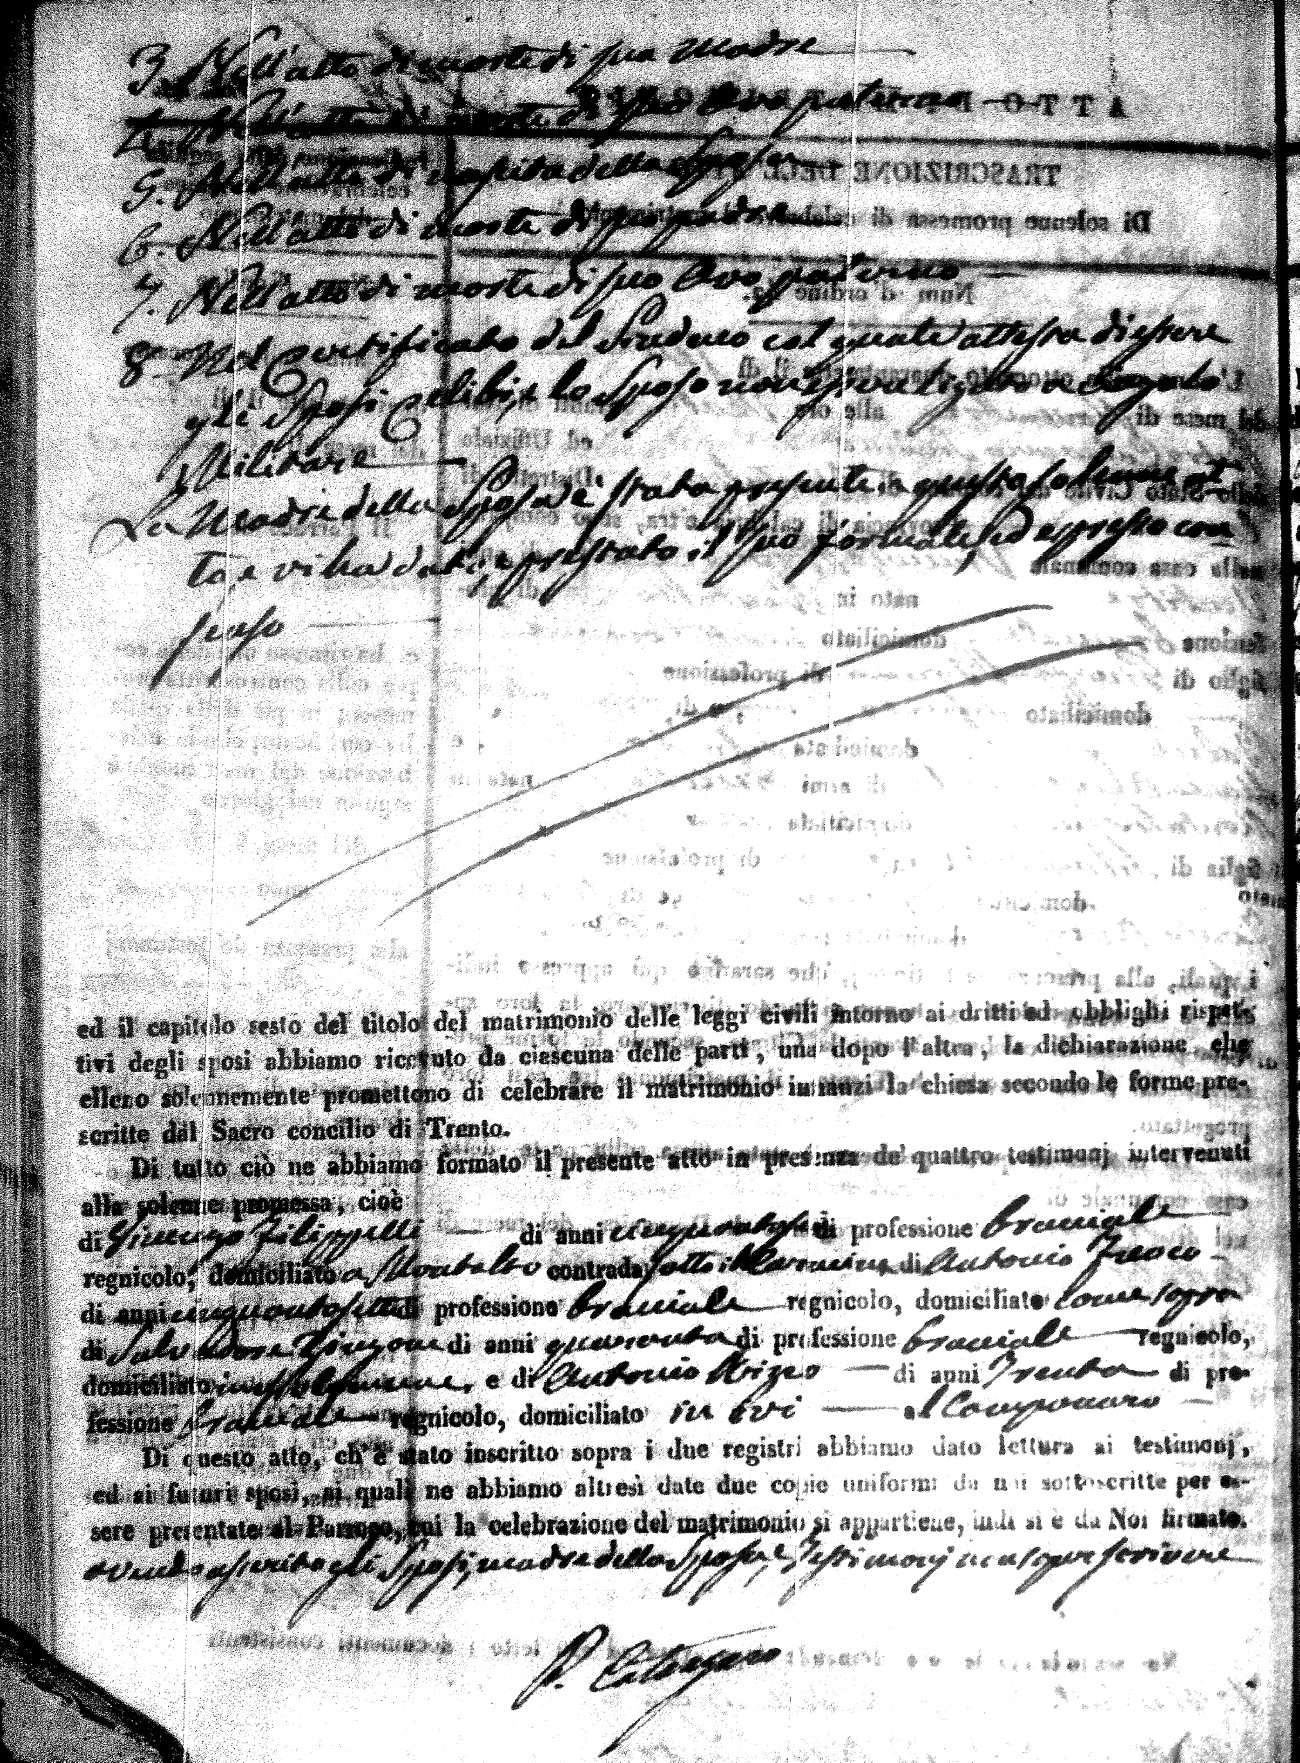 3. Nell'atto di morte di sua Madre
4. Nell'atto di morte di suo Avo paterno
5. Nell'atto di nascita della Sposa
6. Nell'atto di morte di suo padre
7. Nell'atto di morte di suo Avo paterno
8° Nel Certificato del Sindaco col quale attesta di essere
gli Sposi Celibi, e lo Sposo non essere ligato a
Militare
La Madre della Sposa è stata presente a questo solenne at
to, e vi ha dato, e prestato il suo formale, ed espresso con
senso
ed il capitolo sesto del titolo del matrimonio delle leggi civili intorno ai dritti ed obblighi rispet-
tivi degli sposi abbiamo ricevuto da ciascuna delle parti, una dopo l'altra, la dichiarazione che
elleno solennemente promettono di celebrare il matrimonio innanzi la chiesa secondo le forme pre-
scritte dal Sacro concilio di Trento.
Di tutto ciò ne abbiamo formato il presente atto in presenza de' quattro testimonj intervenuti
alla solenne promessa, cioè
di Filippelli di anni di professione bracciale
regnicolo, domiciliato a Montalto contrada sotto di Antonio
di anni cinquantasette di professione bracciale regnicolo, domiciliato come sopra
di Salvadore di anni quaranta di professione bracciale regnicolo,
domiciliato, e di Antonio di anni Trenta di pro-
fessione bracciale regnicolo, domiciliato in ivi
Di questo atto, ch'è stato inscritto sopra i due registri abbiamo dato lettura ai testimonj,
ed ai futuri sposi, ai quali ne abbiamo altresì date due copie uniformi da noi sottoscritte per es-
sere presentate al Parroco, cui la celebrazione del matrimonio si appartiene, indi si è da Noi firmato.
avendo asserito gli Sposi, madre della Sposa, e Testimonj non saper scrivere